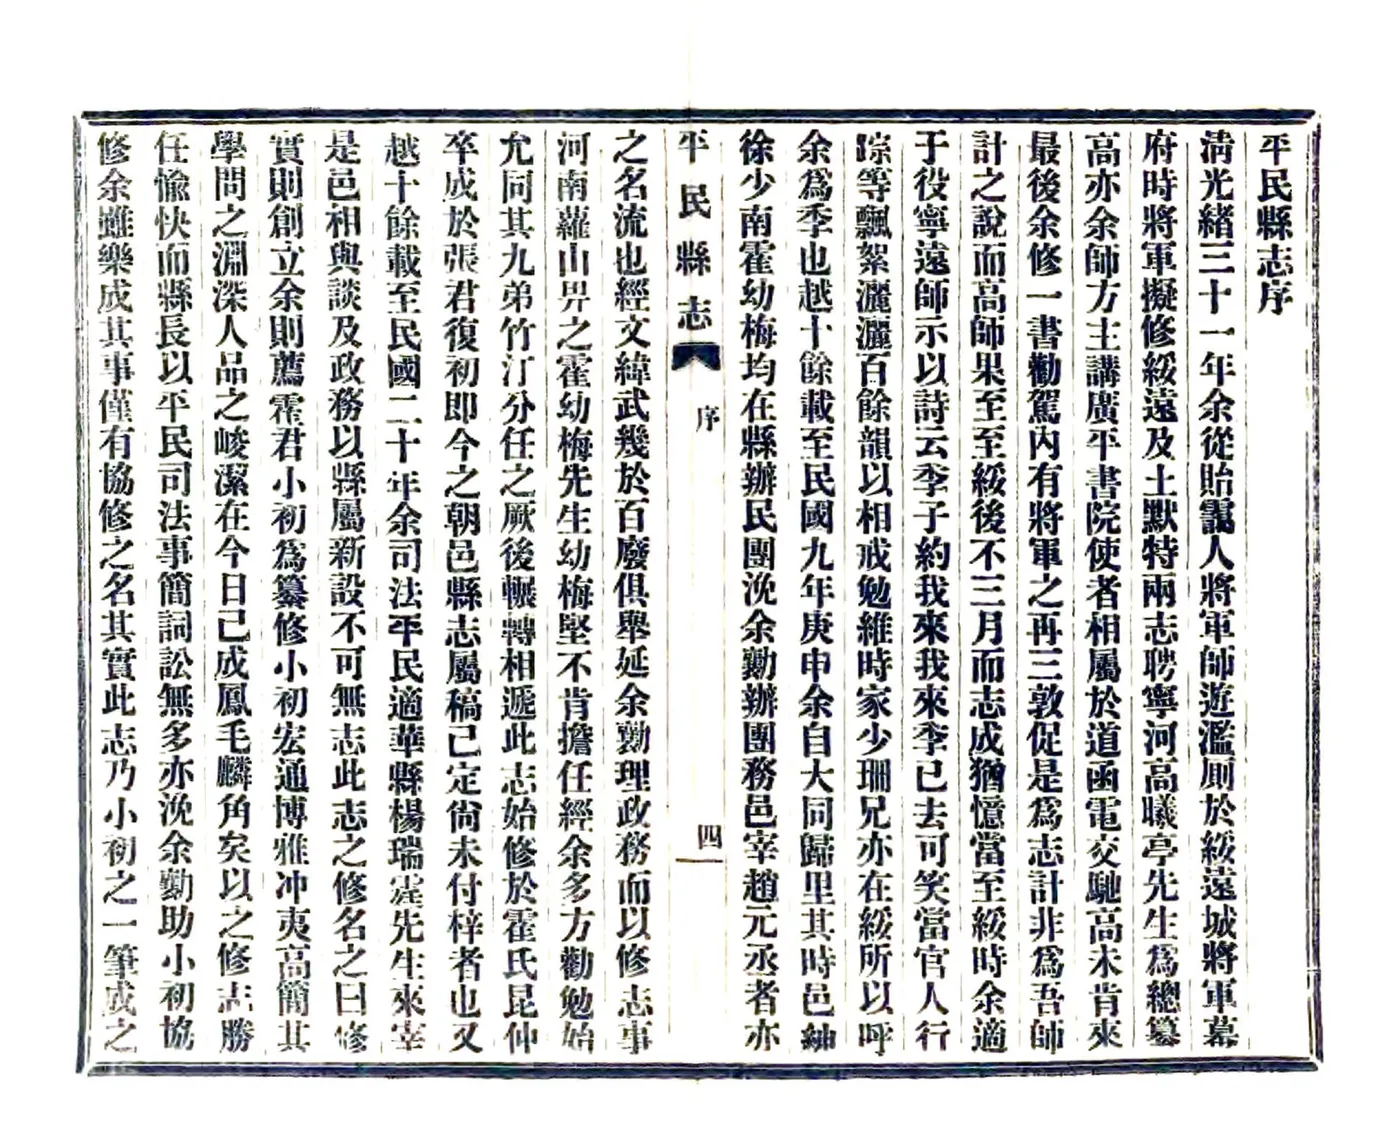 平民縣志序
清光緒三十一年余從貽靄人將軍師遊濫厠於綏遠城將軍幕
府時將軍擬修綏遠及土默特兩志聘寧河高曦亭先生為總纂
高亦余師方主講廣平書院使者相屬於道函電交馳高未肯來
最後余修一書勸駕內有將軍之再三敦促是為志計非為吾師
計之說而高師果至至綏後不三月而志成猶憶當至綏時余適
于役寧遠師示以詩云季子約我來我來季已去可笑當官人行
踪等飄絮灑灑百餘韻以相戒勉維時家少珊兄亦在綏所以呼
余為季也越十餘載至民國九年庚申余自大同歸里其時邑紳
徐少南霍幼梅均在縣辦民團浼余勷辦團務邑宰趙元丞者亦
平民縣志
序
四
之名流也經文緯武幾於百廢俱舉延余勷理政務而以修志事
河南蘿山畀之霍幼梅先生幼梅堅不肯擔任經余多方勸勉始
允同其九弟竹汀分任之厥後輾轉相遞此志始修於霍氏昆仲
卒成於張君復初即今之朝邑縣志屬稿已定尙未付梓者也又
越十餘載至民國二十年余司法平民適華縣楊瑞霆先生來宰
是邑相與談及政務以縣屬新設不可無志此志之修名之曰修
實則創立余則薦霍君小初為纂修小初宏通博雅冲夷高簡其
學問之淵深人品之峻潔在今日已成鳳毛麟角矣以之修志勝
任愉快而縣長以平民司法事簡詞訟無多亦浼余勷助小初協
修余雖樂成其事僅有協修之名其實此志乃小初之一筆成之